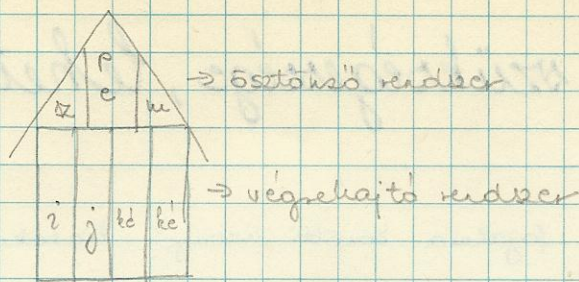 p
e
sz
m
→ ösztönző rendszer
i
j
ké
ké
→ végrehajtó rendszer